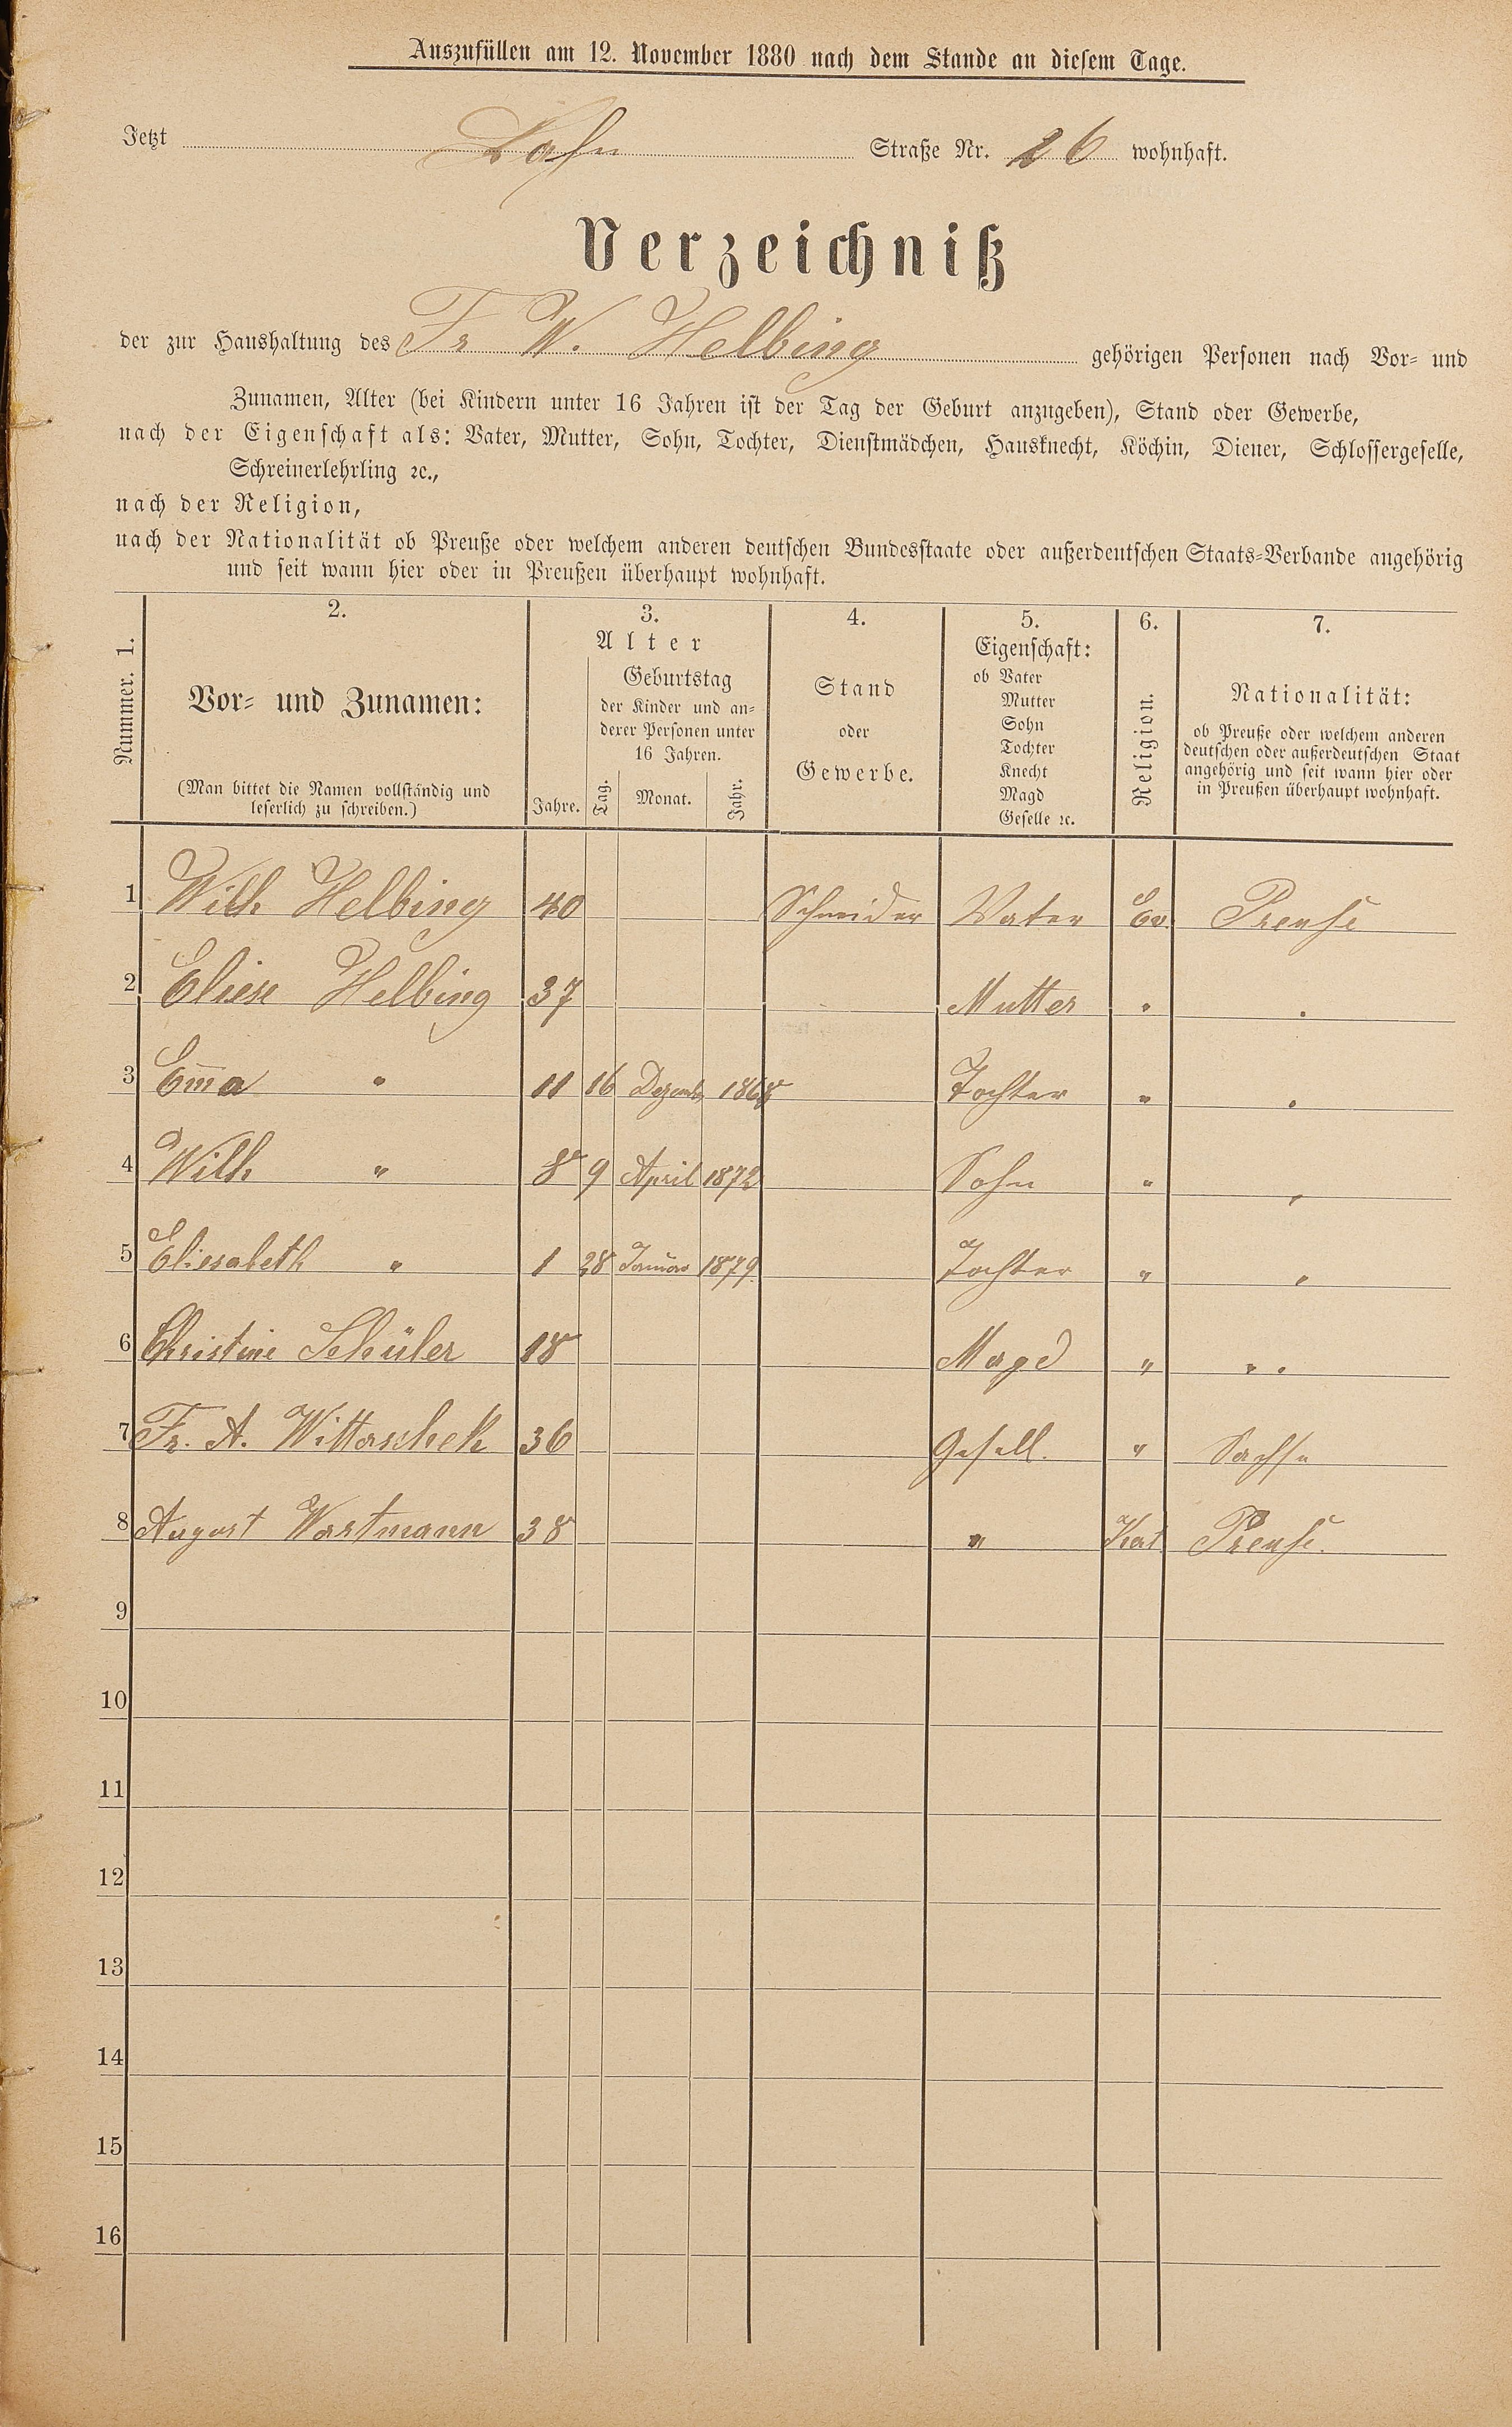 Auszufüllen am 12. November 1880 nach dem Stande an diesem Tage.
Jetzt Lahn Straße Nr. 26 wohnhaft.
Verzeichniß
der zur Haushaltung des Fr W. Helbing gehörigen Personen nach Vor- und
Zunamen, Alter (bei Kindern unter 16 Jahren ist der Tag der Geburt anzugeben), Stand oder Gewerbe,
nach der Eigenschaft als: Vater, Mutter, Sohn, Tochter, Dienstmädchen, Hausknecht, Köchin, Diener, Schlossergeselle,
Schreinerlehrling ꝛc.,
nach der Religion,
nach der Nationalität ob Preuße oder welchem anderen deutschen Bundesstaate oder außerdeutschen Staats-Verbande angehörig
und seit wann hier oder in Preußen überhaupt wohnhaft.
Nummer. 1.
2.
Vor- und Zunamen:
(Man bittet die Namen vollständig und
leserlich zu schreiben.)
3.
Alter
Jahre.
Geburtstag
der Kinder und an-
derer Personen unter
16 Jahren.
Tag. Monat. Jahr.
4.
Stand
oder
Gewerbe.
5.
Eigenschaft:
ob Vater
Mutter
Sohn
Tochter
Knecht
Magd
Geselle ꝛc.
6.
Religion.
7.
Nationalität:
ob Preuße oder welchem anderen
deutschen oder außerdeutschen Staat
angehörig und seit wann hier oder
in Preußen überhaupt wohnhaft.
1 Wilh Helbing 40 Schneider Vater Ev. Preuße
2 Eliese Helbing 37 Mutter " "
3 Em̄a " 11 16 Dezemb 1868 Tochter " "
4 Wilh " 8 9 April 1872 Sohn " "
5 Eliesabeth " 1 28 Januar 1879. Tochter " "
6 Christine Schüler 18 Magd " "
7 Fr. A. Wittaschek 36 Gesell. " Sachse
8 August Wortmann 38 " Kat Preuße.
9
10
11
12
13
14
15
16